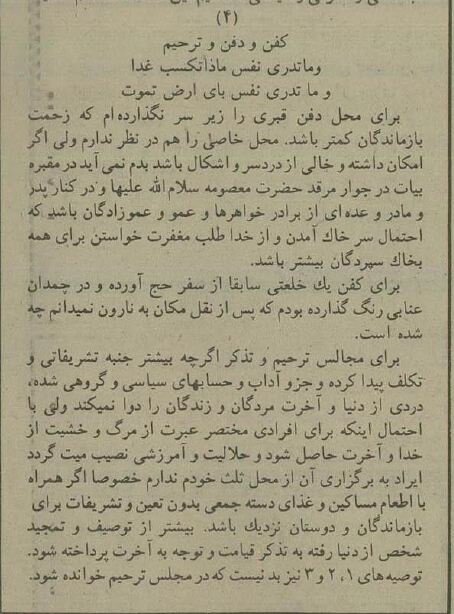 (۴)
كفن و دفن و ترحيم
وماتدری نفس ماذاتكسب غدا
و ما تدری نفس بای ارض تموت
برای محل دفن قبری را زير سر نگذارده‌ام كه زحمت
بازماندگان كمتر باشد. محل خاصی را هم در نظر ندارم ولی اگر
امكان داشته و خالی از دردسر و اشكال باشد بدم نمی آيد در مقبره
بيات در جوار مرقد حضرت معصومه سلام الله عليها و در كنار پدر
و مادر و عده‌ای از برادر خواهرها و عمو و عموزادگان باشد كه
احتمال سر خاك آمدن و از خدا طلب مغفرت خواستن برای همه
بخاك سپردگان بيشتر باشد.
برای كفن يك خلعتی سابقا از سفر حج آورده و در چمدان
عنابی رنگ گذارده بودم كه پس از نقل مكان به نارون نميدانم چه
شده است.
برای مجالس ترحيم و تذكر اگرچه بيشتر جنبه تشريفاتی و
تكلف پيدا كرده و جزو آداب و حسابهای سياسی و گروهی شده،
دردی از دنيا و آخرت مردگان و زندگان را دوا نميكند ولی با
احتمال اينكه برای افرادی مختصر عبرت از مرگ و خشيت از
خدا و آخرت حاصل شود و حلاليت و آمرزشی نصيب ميت گردد
ايراد به برگزاری آن از محل ثلث خودم ندارم خصوصا اگر همراه
با اطعام مساكين و غذای دسته جمعی بدون تعين و تشريفات برای
بازماندگان و دوستان نزديك باشد. بيشتر از توصيف و تمجيد
شخص از دنيا رفته به تذكر قيامت و توجه به آخرت پرداخته شود.
توصيه‌های ۱، ۲ و ۳ نيز بد نيست كه در مجلس ترحيم خوانده شود.